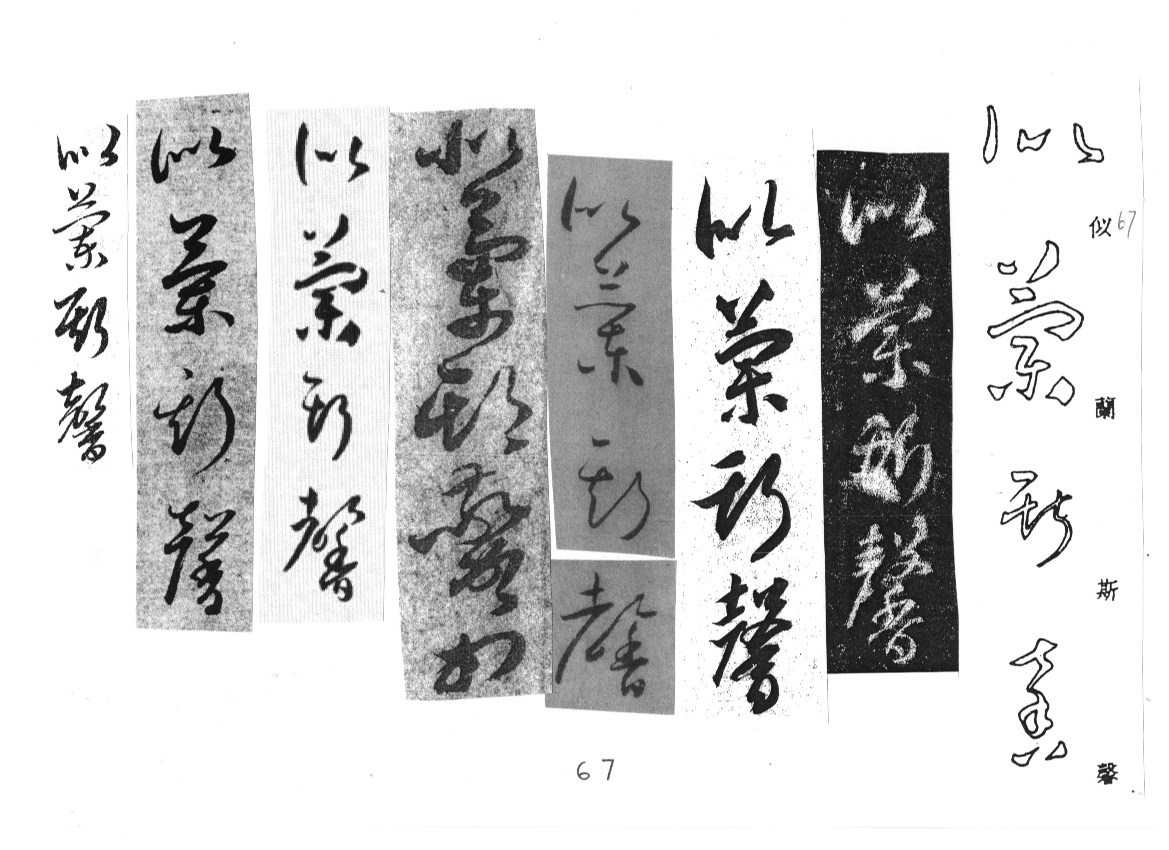 似67蘭斯馨
似蘭斯馨
似蘭斯馨
似蘭斯馨
似蘭斯馨
似蘭斯馨如
似蘭斯馨
似蘭斯馨
似蘭斯馨
67